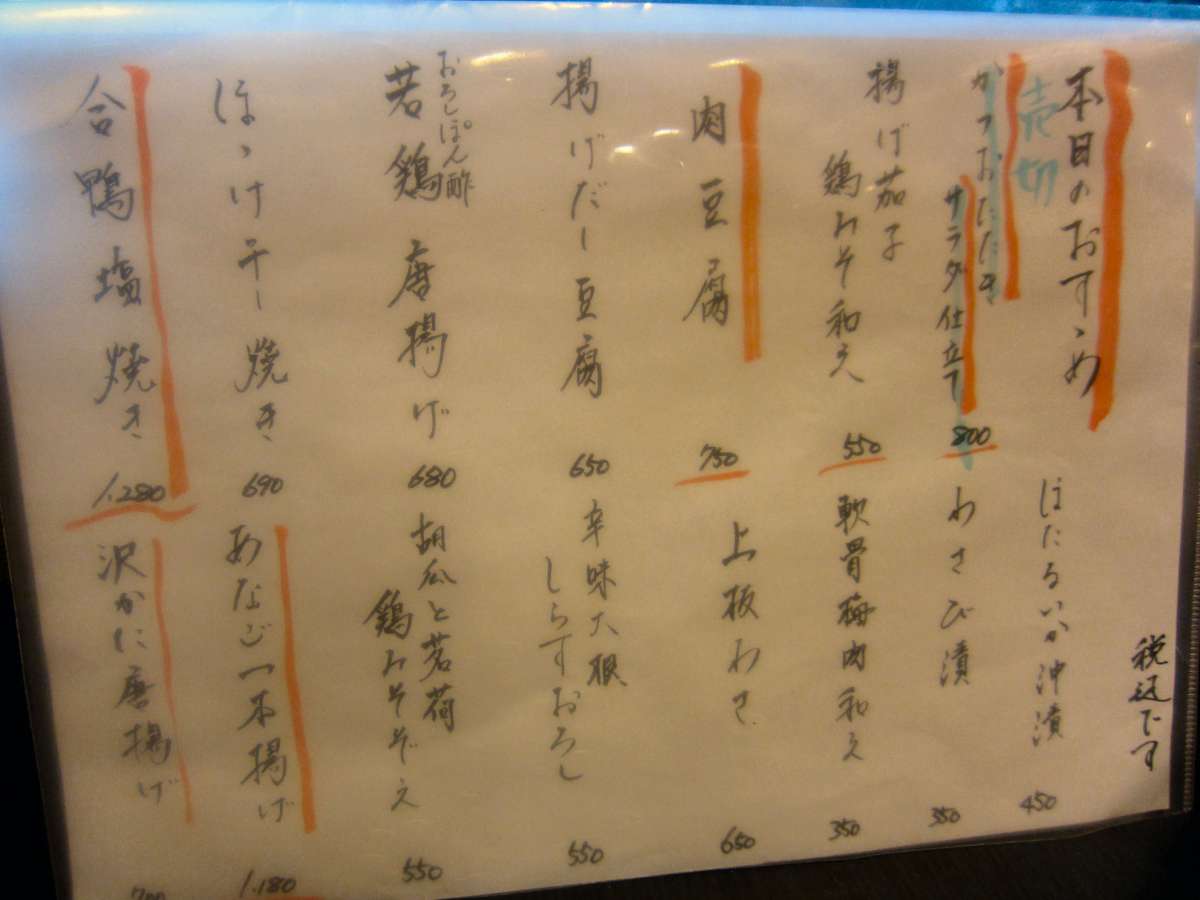 本日のおすゝめ
売切
かつおたたき
サラダ仕立て
800
揚げ茄子
鶏みそ和え
550
肉豆腐
750
揚げだし豆腐
650
おろしぽん酢
若鶏唐揚げ
680
ほっけ干し焼き
690
合鴨塩焼き
1.280
税込です
ほたるいか沖漬
450
わさび漬
350
軟骨梅肉和え
350
上板わさ
650
辛味大根
しらすおろし
550
胡瓜と茗荷
鶏みそぞえ
550
あなご一本揚げ
1.180
沢かに唐揚げ
700